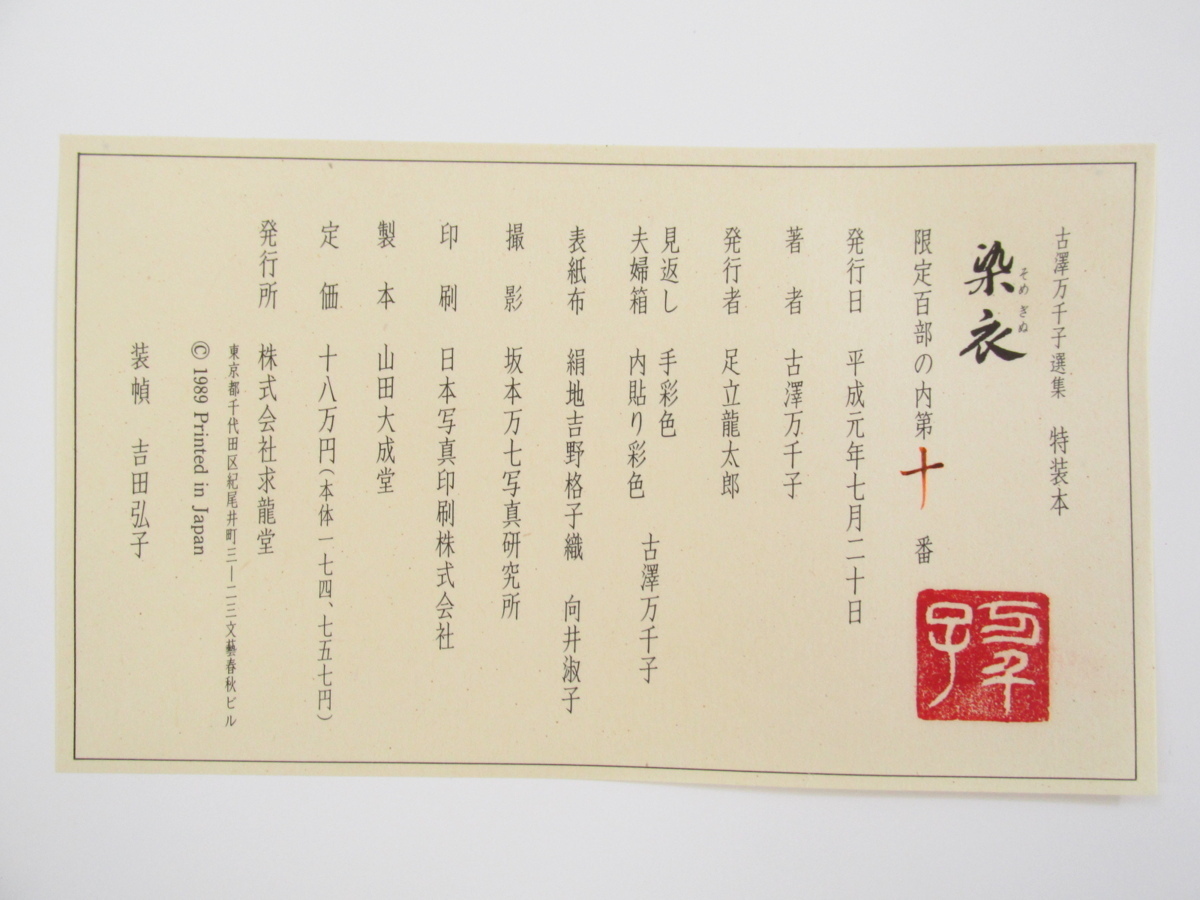 古澤万千子選集　特装本
染衣
そめぎぬ
限定百部の内第十番
万千子
発行日　平成元年七月二十日
著　者　古澤万千子
発行者　足立龍太郎
見返し　手彩色
夫婦箱　内貼り彩色
古澤万千子
表紙布　絹地吉野格子織　向井淑子
撮　影　坂本万七写真研究所
印　刷　日本写真印刷株式会社
製　本　山田大成堂
定　価　十八万円（本体一七四、七五七円）
発行所　株式会社求龍堂
東京都千代田区紀尾井町三―二三文藝春秋ビル
© 1989 Printed in Japan
装幀　吉田弘子